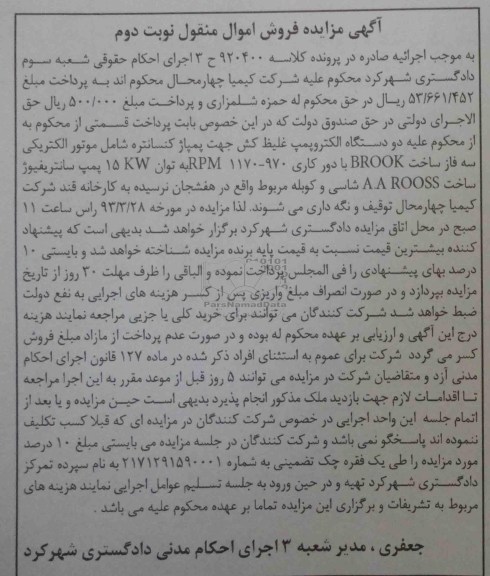 آگهی مزایده فروش اموال منقول نوبت دوم
به موجب اجرائیه صادره در پرونده کلاسه ۹۲۰۴۰۰ ح ۳ اجرای احکام حقوقی شعبه سوم
دادگستری شهرکرد محکوم علیه شرکت کیمیا چهارمحال محکوم اند به پرداخت مبلغ
۵۳/۶۶۱/۴۵۲ ریال در حق محکوم له حمزه شلمزاری و پرداخت مبلغ ۵۰۰/۰۰۰ ریال حق
الاجرای دولتی در حق صندوق دولت که در این خصوص بابت پرداخت قسمتی از محکوم به
از محکوم علیه دو دستگاه الکتروپمپ غلیظ کش جهت پمپاژ کنسانتره شامل موتور الکتریکی
سه فاز ساخت BROOK با دور کاری ۹۷۰-۱۱۷۰ RPMبه توان ۱۵ KW پمپ سانتریفیوژ
ساخت A.A ROOSS شاسی و کوپله مربوط واقع در هفشجان نرسیده به کارخانه قند شرکت
کیمیا چهارمحال توقیف و نگه داری می شوند. لذا مزایده در مورخه ۹۳/۳/۲۸ راس ساعت ۱۱
صبح در محل اتاق مزایده دادگستری شهرکرد برگزار خواهد شد بدیهی است که پیشنهاد
کننده بیشترین قیمت نسبت به قیمت پایه برنده مزایده شناخته خواهد شد و بایستی ۱۰
درصد بهای پیشنهادی را فی المجلس پرداخت نموده و الباقی را ظرف مهلت ۳۰ روز از تاریخ
مزایده بپردازد و در صورت انصراف مبلغ واریزی پس از کسر هزینه های اجرایی به نفع دولت
ضبط خواهد شد شرکت کنندگان می توانند برای خرید کلی یا جزیی مراجعه نمایند هزینه
درج این آگهی و ارزیابی بر عهده محکوم له بوده و در صورت عدم پرداخت از مازاد مبلغ فروش
کسر می گردد شرکت برای عموم به استثنای افراد ذکر شده در ماده ۱۲۷ قانون اجرای احکام
مدنی آزد و متقاضیان شرکت در مزایده می توانند ۵ روز قبل از موعد مقرر به این اجرا مراجعه
تا اقدامات لازم جهت بازدید ملک مذکور انجام پذیرد بدیهی است حین مزایده و یا بعد از
اتمام جلسه این واحد اجرایی در خصوص شرکت کنندگان در مزایده ای که قبلا کسب تکلیف
ننموده اند پاسخگو نمی باشد و شرکت کنندگان در جلسه مزایده می بایستی مبلغ ۱۰ درصد
مورد مزایده را طی یک فقره چک تضمینی به شماره ۲۱۷۱۲۹۱۵۹۰۰۰۱ به نام سپرده تمرکز
دادگستری شهرکرد تهیه و در حین ورود به جلسه تسلیم عوامل اجرایی نمایند هزینه های
مربوط به تشریفات و برگزاری این مزایده تماما بر عهده محکوم علیه می باشد .
جعفری ، مدیر شعبه ۳ اجرای احکام مدنی دادگستری شهرکرد